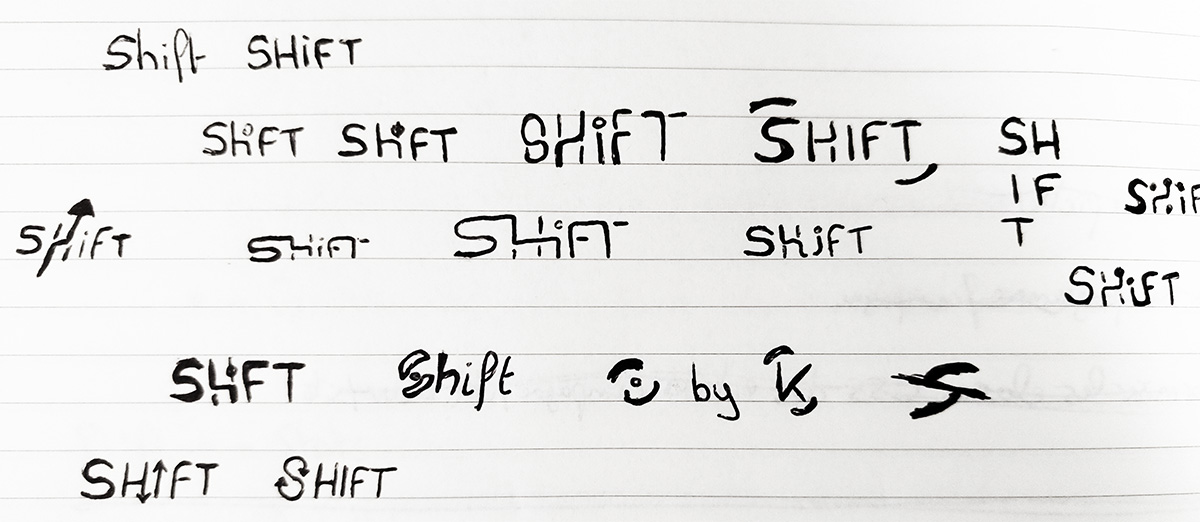 Shift SHiFT
SHiFT SHiFT SHiFT SHIFT SH
IF
T
SHiF
SHiFT SHiFT SHiFT SHiFT
SHiFT
SHiFT Shift by K S
SHIFT SHIFT